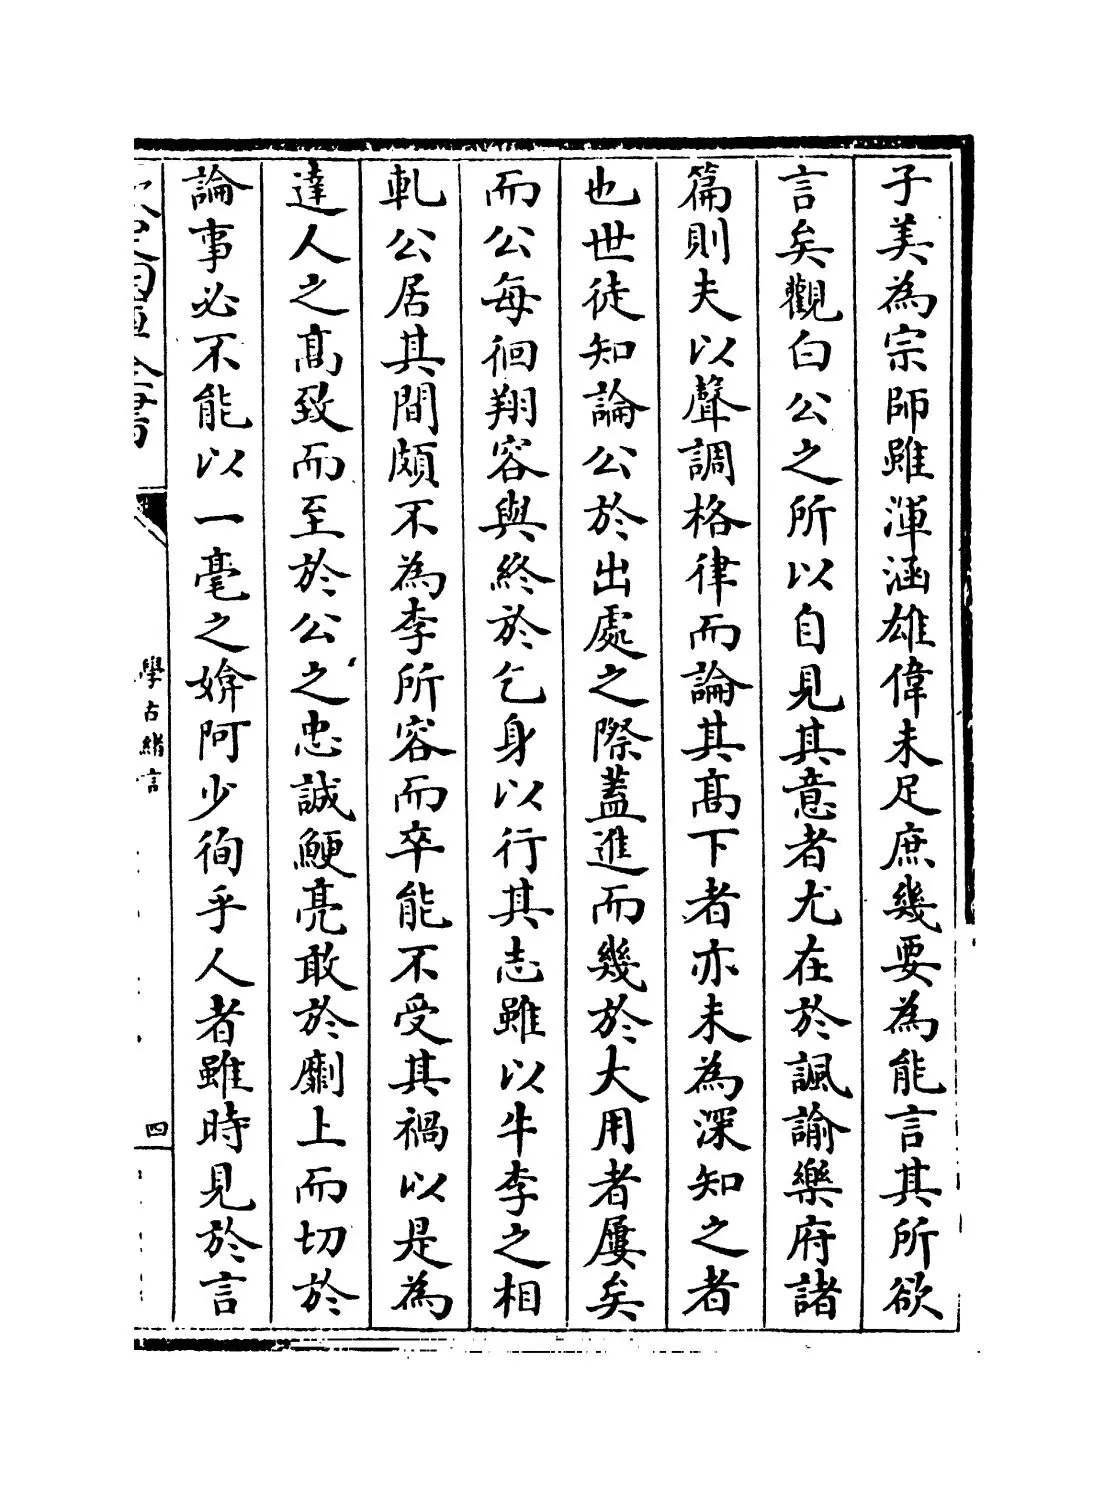 子美為宗師雖渾涵雄偉未足庶幾要為能言其所欲
言矣觀白公之所以自見其意者尤在於諷諭樂府諸
篇則夫以聲調格律而論其髙下者亦未為深知之者
也世徒知論公於出處之際蓋進而幾於大用者屢矣
而公每徊翔容與終於乞身以行其志雖以牛李之相
軋公居其間頗不為李所容而卒能不受其禍以是為
達人之髙致而至於公之忠誠鯁亮敢於劘上而切於
論事必不能以一毫之媕阿少徇乎人者雖時見於言
欽定四庫全書
學古緒言
四